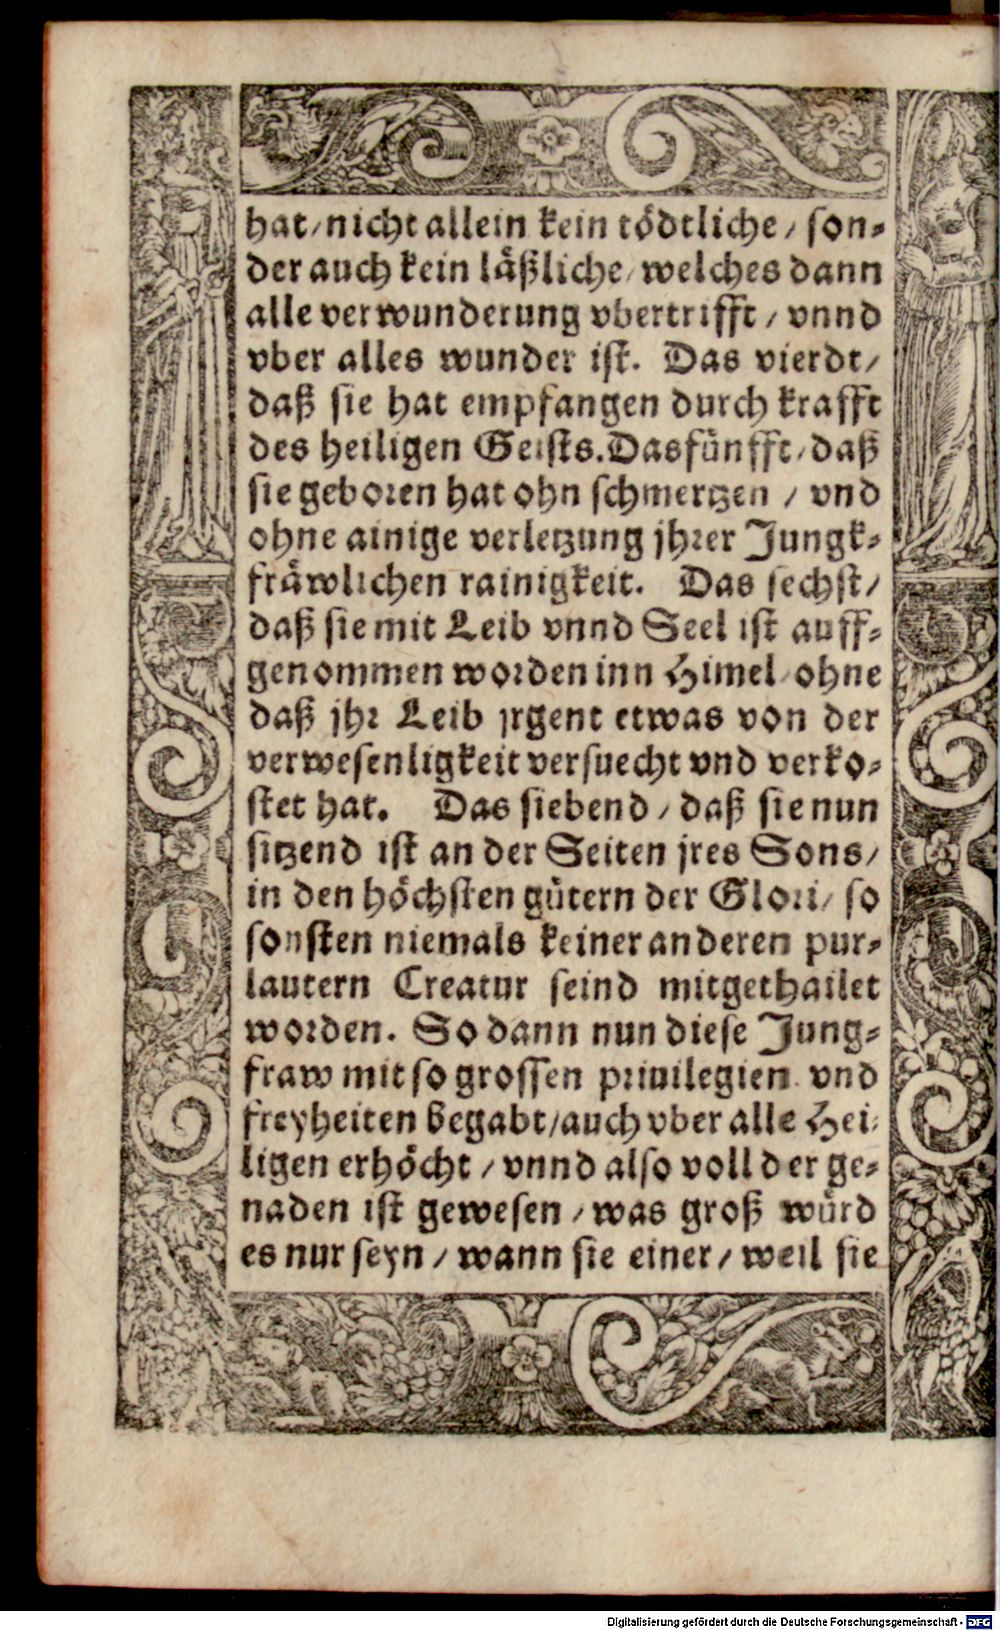 hat/nicht allein kein tödtliche/ son-
der auch kein läßliche/ welches dann
alle verwunderung vbertrifft/ vnnd
vber alles wunder ist. Das vierdt/
daß sie hat empfangen durch krafft
des heiligen Geists. Das fünfft/ daß
sie geboren hat ohn schmertzen / vnd
ohne ainige verletzung jhrer Jungk-
fräwlichen rainigkeit. Das sechst/
daß sie mit Leib vnnd Seel ist auff-
genommen worden inn Himel/ ohne
daß jhr Leib jrgent etwas von der
verwesenligkeit versuecht vnd verko-
stet hat. Das siebend/ daß sie nun
sitzend ist an der Seiten jres Sons/
in den höchsten gütern der Glori/ so
sonsten niemals keiner anderen pur-
lautern Creatur seind mitgethailet
worden. So dann nun diese Jung-
fraw mit so grossen priuilegien vnd
freyheiten begabt/auch vber alle Hei-
ligen erhöcht/ vnnd also voll der ge-
naden ist gewesen/ was groß würd
es nur seyn/ wann sie einer/ weil sie
Digitalisierung gefördert durch die Deutsche Forschungsgemeinschaft - DFG